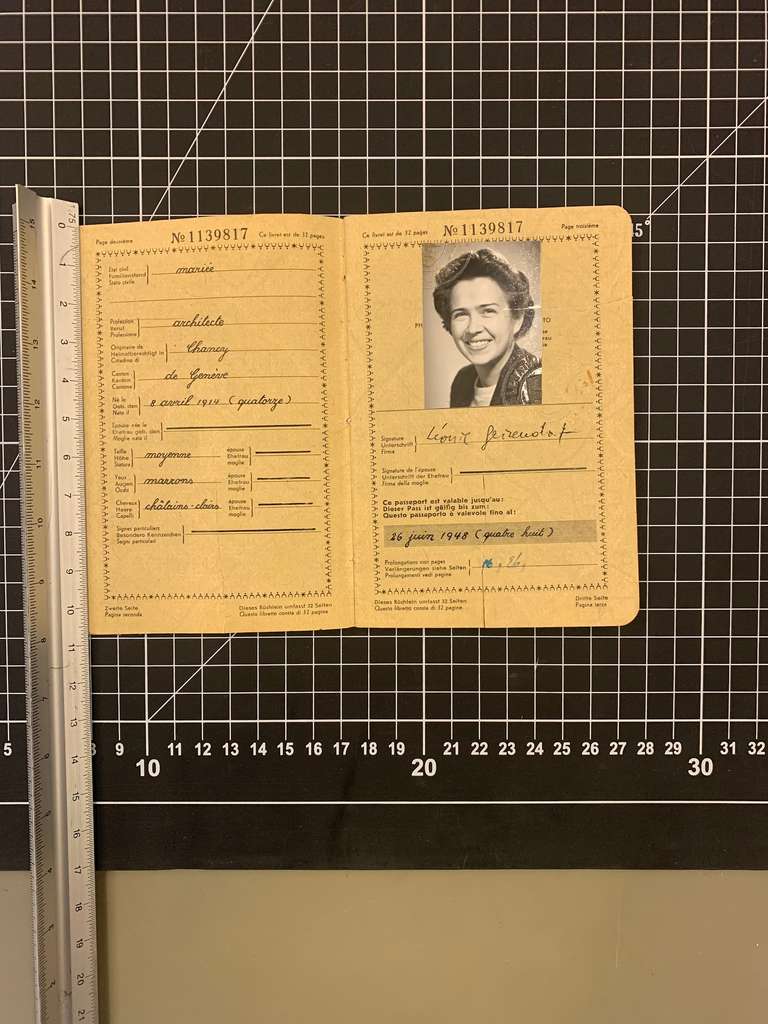 Page deuxième № 1139817 Ce livret est de 32 pages
Etat civil
Familienstand
Stato civile
mariée
Profession
Beruf
Professione
architecte
Originaire de
Heimatberechtigt in
Cittadino di
Chancy
Canton
Kanton
Cantone
de Genève
Né le
Geb. den
Nato il
8 avril 1914 (quatorze)
Epouse née le
Ehefrau geb. den
Moglie nata il
Taille
Höhe
Statura
moyenne
épouse
Ehefrau
moglie
Yeux
Augen
Occhi
marrons
épouse
Ehefrau
moglie
Cheveux
Haare
Capelli
châtains-clairs
épouse
Ehefrau
moglie
Signes particuliers
Besondere Kennzeichen
Segni particolari
Zweite Seite
Pagina seconda
Dieses Büchlein umfasst 32 Seiten
Questo libretto consta di 32 pagine
Ce livret est de 32 pages № 1139817 Page troisième
PH
TO
Signature
Unterschrift
Firma
Léonie Geisendorf
Signature de l'épouse
Unterschrift der Ehefrau
Firma della moglie
Ce passeport est valable jusqu'au:
Dieser Pass ist gültig bis zum:
Questo passaporto è valevole fino al:
26 juin 1948 (quatre huit)
Prolongations voir pages
Verlängerungen siehe Seiten
Prolungamenti vedi pagine
Dieses Büchlein umfasst 32 Seiten
Questo libretto consta di 32 pagine
Dritte Seite
Pagina terza
5 8 9 10 11 12 13 14 15 16 17 18 19 20 21 22 23 24 25 26 27 28 29 30 31 32
45°
1:75
0
1
2
3
4
5
6
7
8
9
10
11
12
13
14
15
16
17
18
19
20
21